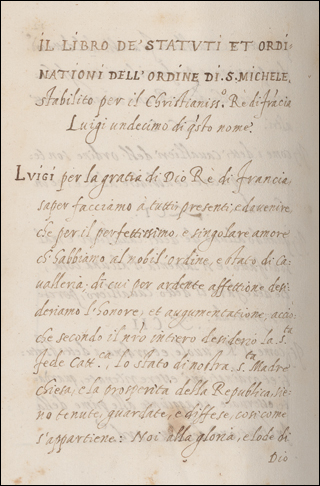 IL LIBRO DE' STATVTI ET ORDI
NATIONI DELL'ORDINE DI. S. MICHELE,
stabilito per il Christianiss.º Rè di frācia
Luigi undecimo di q̄sto nome.
LVIGI per la gratia di Dio Rè di francia,
saper facciamo à tutti presenti, e da venire
che per il perfettissimo, e singolare amore
ch' habbiamo al nobil' ordine, e stato di Ca-
valleria; di cui per ardente affettione desi-
deriamo l'honore, et augumentatione, acciò
che secondo il nr̄o intiero desiderio la S.ta
fede Catt.ca, lo stato di nostra S.ta Madre
chiesa, e la prosperità della Republica, sie-
no tenute, guardate, e diffese, così come
s'appartiene: Noi alla gloria, e lode di
Dio